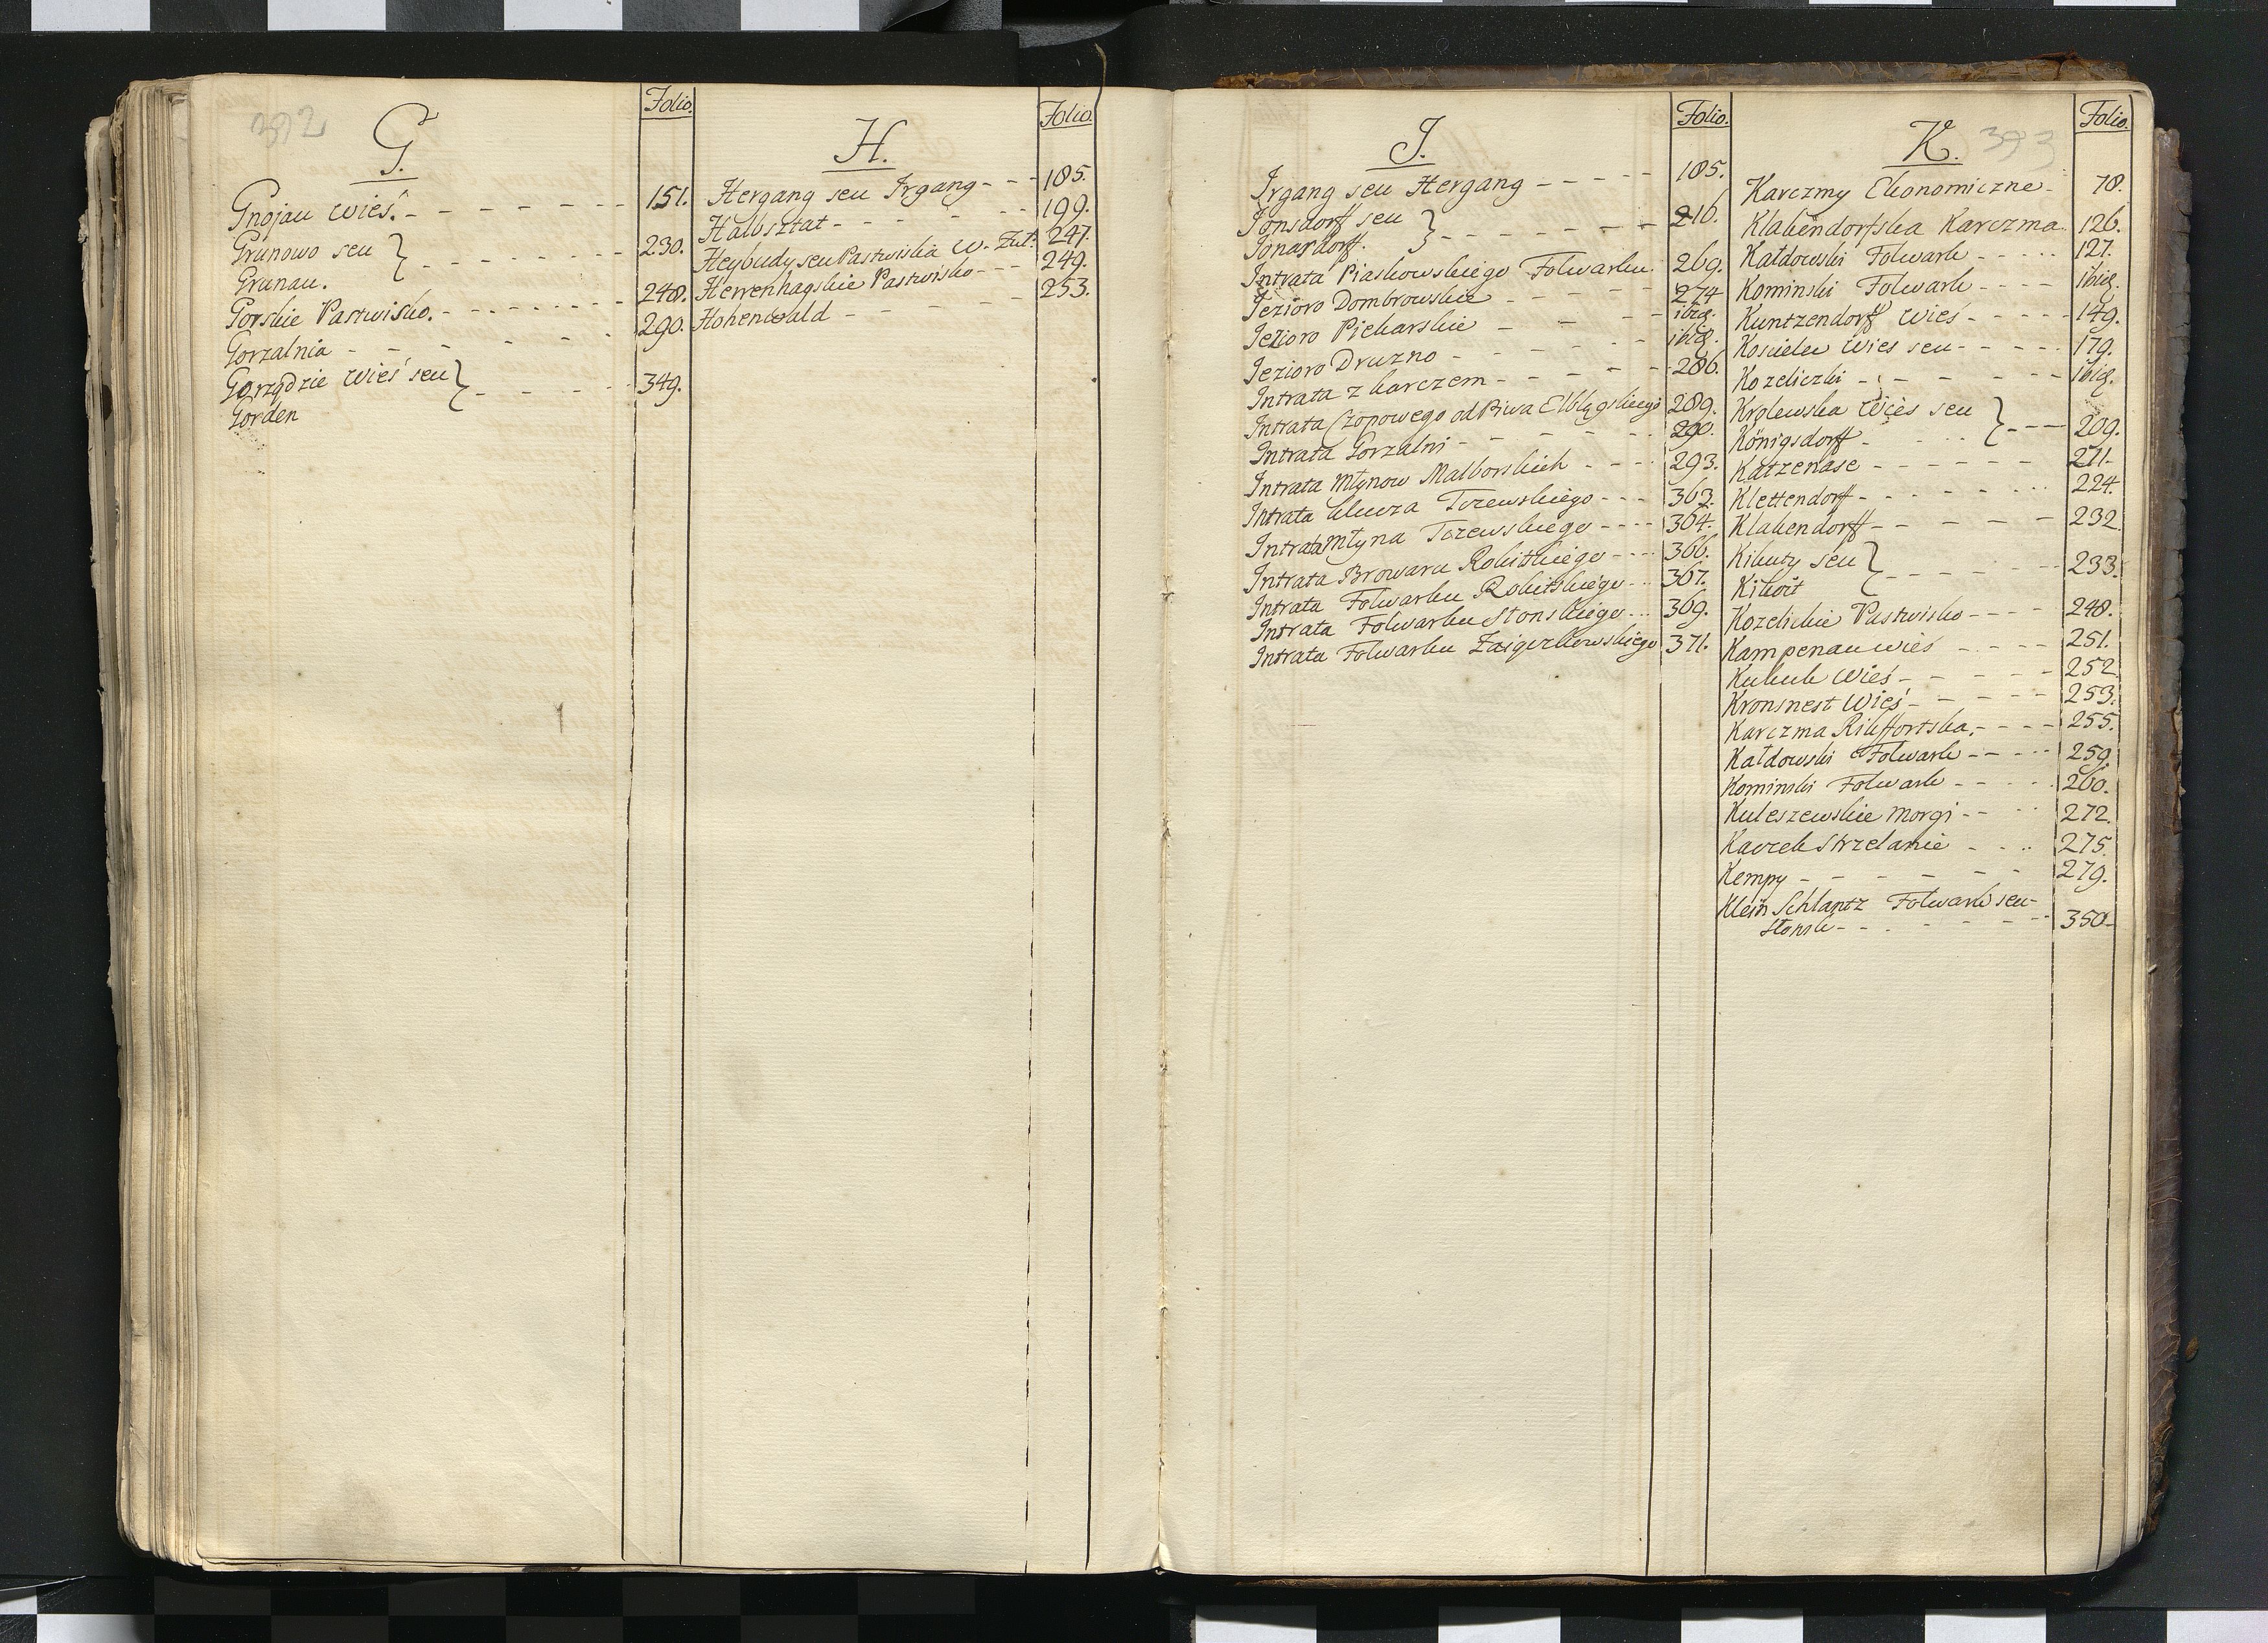 392
G.
Folio.
Gnojau Wieś. - - - - - - - 151.
Grunowo seu } - - - - - - - 230.
Grunau.
Gorskie Pastwisko. - - - - - - - 248.
Gorzalnia - - - - - - 290.
Gorządzie Wieś seu } - - - - - 349.
Gorden
H.
Folio.
Hergang seu Irgang - - - 185.
Halbsztat - - - - - - 199.
Heybudy seu Pastwiska W. Żuł: 247.
Herrenhagskie Pastwisko - - - 249.
Hohenwald - - - - - 253.
I.
Folio.
Irgang seu Hergang - - - - - 185.
Jonsdorff seu } - - - - - - 216.
Jonasdorff.
Intrata Piaskowskiego Folwarku. 269.
Jezioro Dombrowskie - - - - - 274
Jezioro Piekarskie - - - - ibid.
Jezioro Druzno - - - - - ibid.
Intrata z karczem - - - - - 286.
Intrata Czopowego od Piwa Elblągskiego 289.
Intrata Gorzalni - - - - - - 290.
Intrata Młynow Malborskich - - - - 293.
Intrata klucza Tczewskiego - - - 363.
Intrata Młyna Tczewskiego - - - - 364.
Intrata Browaru Rokitskiego - - - 366.
Intrata Folwarku Rokitskiego - - - 367.
Intrata Folwarku Stonskiego - - - 369.
Intrata Folwarku Zaigezkowskiego 371.
K.
393
Folio.
Karczmy Ekonomiczne - 78.
Klakendorfska Karczma. 126.
Kałdowski Folwark - - - - - 127.
Kominski Folwark - - - - ibid.
Kuntzendorff Wieś - - - - - 149.
Koscielec Wies seu - - - - - 179.
Kozeliczki - - - - - - ibid.
Krolewska Wieś seu } - - - 209.
Königsdorff - - - -
Katzenase - - - - - - 211.
Klettendorf - - - - - - 224.
Klakendorff - - - - - 232.
Kikuty seu } - - - - - 233.
Kikoit
Kozelickie Pastwisko - - - - 248.
Kampenau wieś - - - - 251.
Kukuk Wieś - - - - - - 252.
Kronsnest Wieś - - - - - 253.
Karczma Rikffortska, - - - - 255.
Kałdowski Folwark - - - - - 259.
Kominski Folwark - - - - - 260.
Kuleszewskie morgi - - - - 272.
Kaczek Strzelanie - - - - 275.
Kempy - - - - - - 279.
Klein Schlantz Folwark seu -
Stonsk - - - - - - - 350.